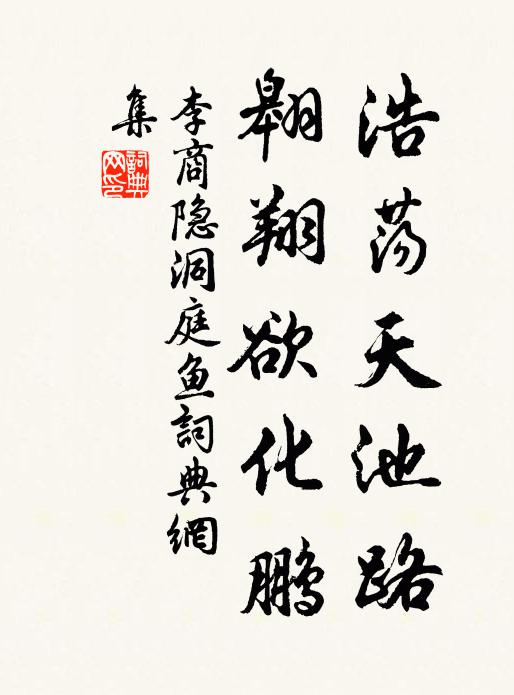 浩荡天池路
翱翔欲化鹏
李商隐洞庭鱼詞典網
集
詞典
网印